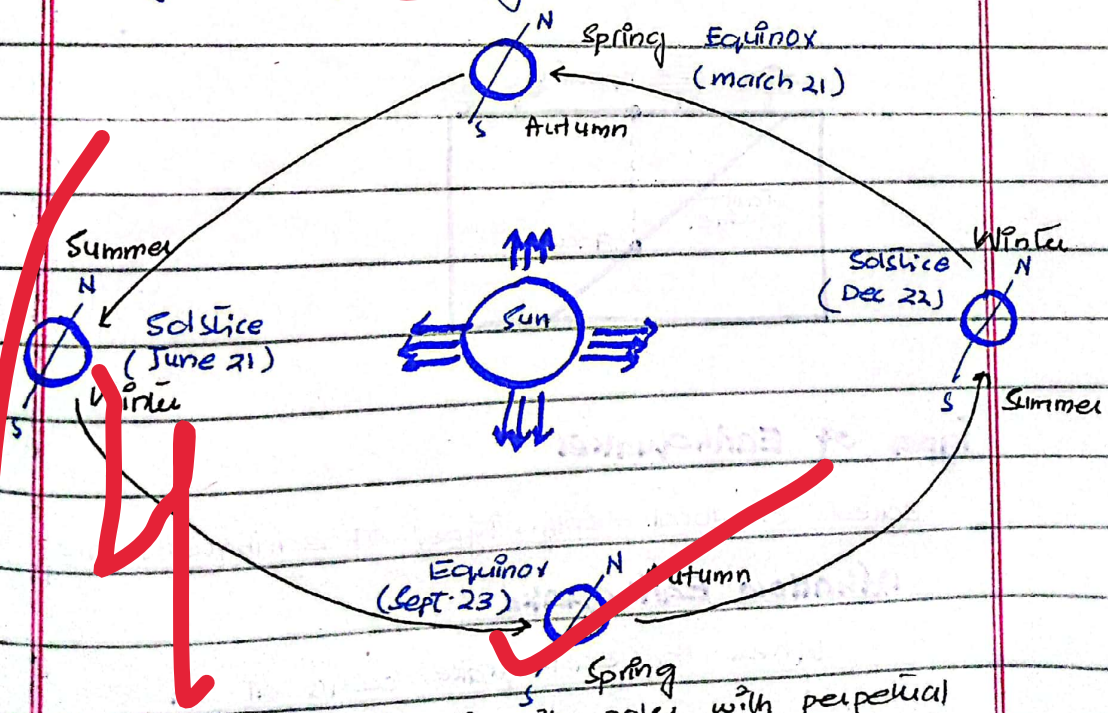 N
Spring Equinox
(march 21)
S Autumn
Summer
N
Solstice
(June 21)
Winter
S
Sun
Winter
Solstice
N
(Dec 22)
S
Summer
Equinox
(Sept. 23)
N
Autumn
S
Spring
poles with perpetual